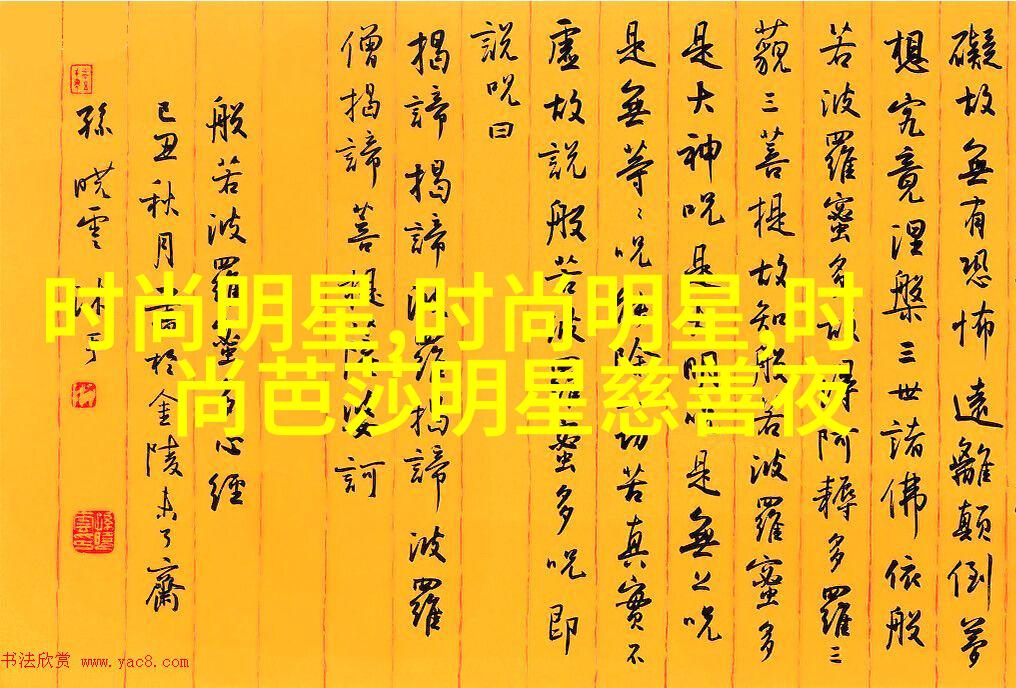 时尚明星,时尚明星,时
尚芭莎明星慈善夜
礙故無有恐怖遠離顛倒夢
想究竟涅槃三世諸佛依般
若波羅蜜多故得阿耨多羅三
藐三菩提故知般若波羅蜜多
是大神呪是大明呪是無上呪
是無等々呪能除一切苦真實不
虛故說般若波羅蜜多呪即
說呪曰
揭諦揭諦波羅揭諦波羅
僧揭諦菩提薩婆訶
般若波羅蜜多心經
己丑秋月書於金陵未了齋
孫曉雲沐手
书法欣赏 www.yac8.com